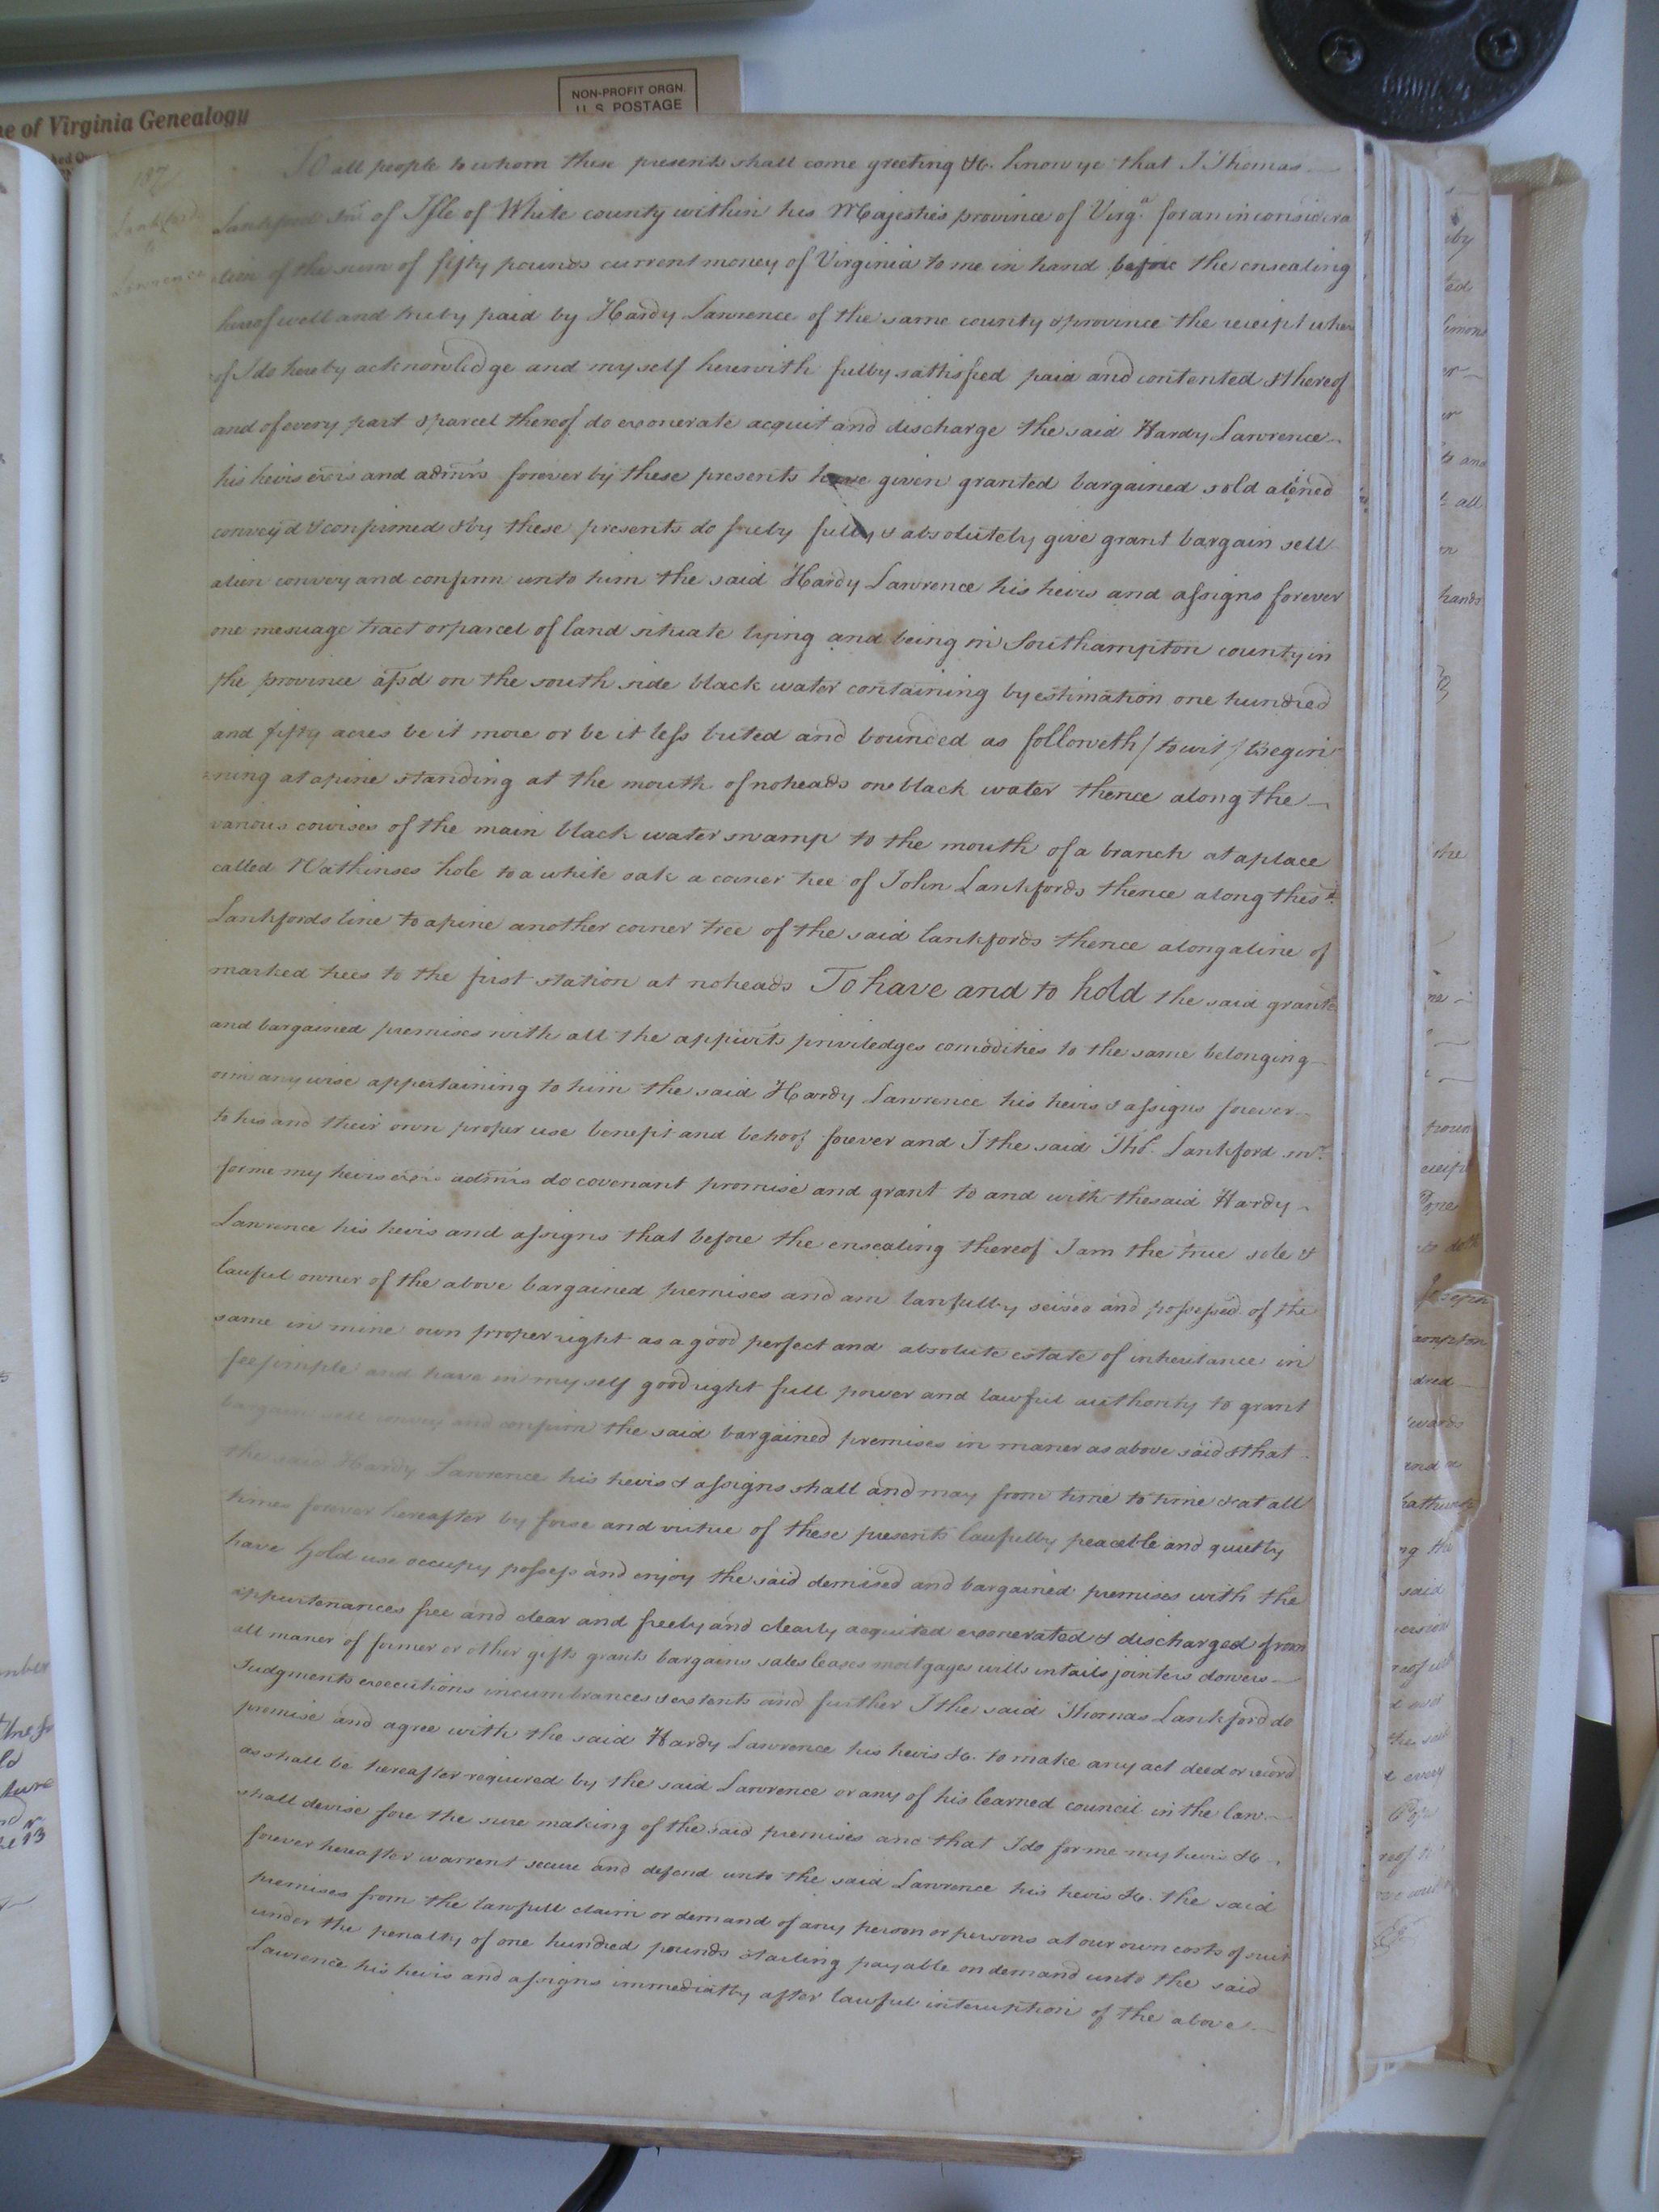 e of Virginia Genealogy
NON-PROFIT ORGN.
U. S. POSTAGE
187
Lankford
to
Lawrence
TO all people to whom these presents shall come greeting &c. know ye that I Thomas
Lankford Snr. of Isle of White county within his Majesties province of Virga. for an in considera
tion of the sum of fifty pounds current money of Virginia to me in hand before the ensealing
hereof well and truly paid by Hardy Lawrence of the same county & province the receipt wher
of I do hereby acknowledge and myself herewith fully sattisfied paid and contented & thereof
and of every part & parcel thereof do exonerate acquit and discharge the said Hardy Lawrence
his heirs exrs and admrs forever by these presents have given granted bargained sold aliened
convey'd & confirmed & by these presents do freely fully & absolutely give grant bargain sell
alien convey and confirm unto him the said Hardy Lawrence his heirs and assigns forever
one mesuage tract or parcel of land situate lying and being in Southampton county in
the province afsd on the south side black water containing by estimation one hundred
and fifty acres be it more or be it less buted and bounded as followeth / towit / Begin
ning at a pine standing at the mouth of noheads one black water thence along the
various courses of the main black water swamp to the mouth of a branch at a place
called Watkinses hole to a white oak a corner tree of John Lankfords thence along the sd.
Lankfords line to a pine another corner tree of the said lankfords thence along a line of
marked trees to the first station at noheads To have and to hold the said grante
and bargained premises with all the appurts priviledges comodities to the same belonging
or in any wise appertaining to him the said Hardy Lawrence his heirs & assigns forever
to his and their own proper use benefit and behoof forever and I the said Tho. Lankford snr.
for me my heirs exrs admrs do covenant promise and grant to and with the said Hardy
Lawrence his heirs and assigns that before the ensealing thereof I am the true sole &
lawful owner of the above bargained premises and am lawfully seised and possessed of the
same in mine own proper right as a good perfect and absolute estate of inheritance in
fee simple and have in my self good right full power and lawful authority to grant
bargain sell convey and confirm the said bargained premises in maner as above said & that
the said Hardy Lawrence his heirs & assigns shall and may from time to time & at all
times forever hereafter by force and virtue of these presents lawfully peaceble and quietly
have hold use occupy possess and enjoy the said demised and bargained premises with the
appurtenances free and clear and freely and clearly acquited exonerated & discharged from
all maner of former or other gifts grants bargains sales leases mortgages wills intails jointers dowers
Judgments executions incumbrances & extents and further I the said Thomas Lankford do
promise and agree with the said Hardy Lawrence his heirs &c. to make any act deed or record
as shall be hereafter required by the said Lawrence or any of his learned council in the law
shall devise fore the sure making of the said premises and that I do for me my heirs &c
forever hereafter warrent secure and defend unto the said Lawrence his heirs &c. the said
premises from the lawfull claim or demand of any person or persons at our own costs of suit
under the penalty of one hundred pounds starling payable on demand unto the said
Lawrence his heirs and assigns immediatly after lawful interuption of the above